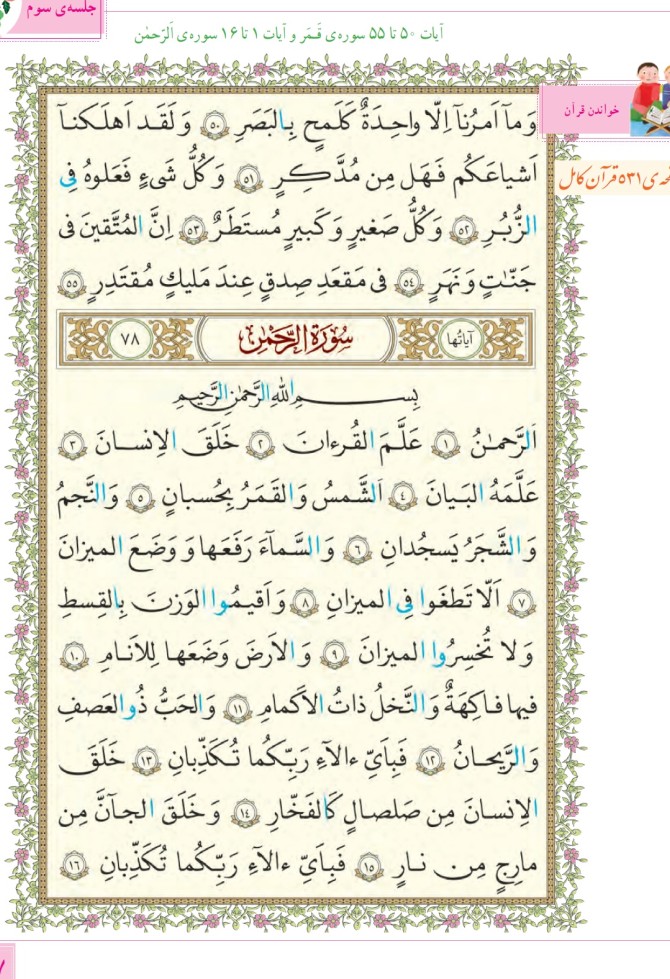 جلسه‌ی سوم
آیات ۵۰ تا ۵۵ سوره‌ی قَمَر و آیات ۱ تا ۱۶ سوره‌ی اَلرَّحمٰن
خواندن قرآن
۵۳۱ قرآن کامل
وَ ما اَمرُنآ اِلّا واحِدَةٌ كَلَمحٍ بِالبَصَرِ ۵۰ وَ لَقَد اَهلَكنآ
اَشياعَكُم فَهَل مِن مُدَّكِرٍ ۵۱ وَ كُلُّ شَیءٍ فَعَلوهُ فِی
الزُّبُرِ ۵۲ وَ كُلُّ صَغيرٍ وَ كَبيرٍ مُستَطَرٌ ۵۳ اِنَّ المُتَّقينَ فی
جَنّاتٍ وَ نَهَرٍ ۵۴ فی مَقعَدِ صِدقٍ عِندَ مَليكٍ مُقتَدِرٍ ۵۵
آياتُها سُورَةُ الرَّحمٰن ۷۸
بِسمِ اللّٰهِ الرَّحمٰنِ الرَّحيمِ
اَلرَّحمٰنُ ۱ عَلَّمَ القُرءانَ ۲ خَلَقَ الاِنسانَ ۳
عَلَّمَهُ البَيانَ ۴ اَلشَّمسُ وَ القَمَرُ بِحُسبانٍ ۵ وَ النَّجمُ
وَ الشَّجَرُ يَسجُدانِ ۶ وَ السَّمآءَ رَفَعَها وَ وَضَعَ الميزانَ
۷ اَلّا تَطغَوا فِی الميزانِ ۸ وَ اَقيمُوا الوَزنَ بِالقِسطِ
وَ لا تُخسِرُوا الميزانَ ۹ وَ الاَرضَ وَضَعَها لِلاَنامِ ۱۰
فيها فاكِهَةٌ وَ النَّخلُ ذاتُ الاَكمامِ ۱۱ وَ الحَبُّ ذُو العَصفِ
وَ الرَّيحانُ ۱۲ فَبِاَیِّ ءالآءِ رَبِّكُما تُكَذِّبانِ ۱۳ خَلَقَ
الاِنسانَ مِن صَلصالٍ كَالفَخّارِ ۱۴ وَ خَلَقَ الجآنَّ مِن
مارِجٍ مِن نارٍ ۱۵ فَبِاَیِّ ءالآءِ رَبِّكُما تُكَذِّبانِ ۱۶